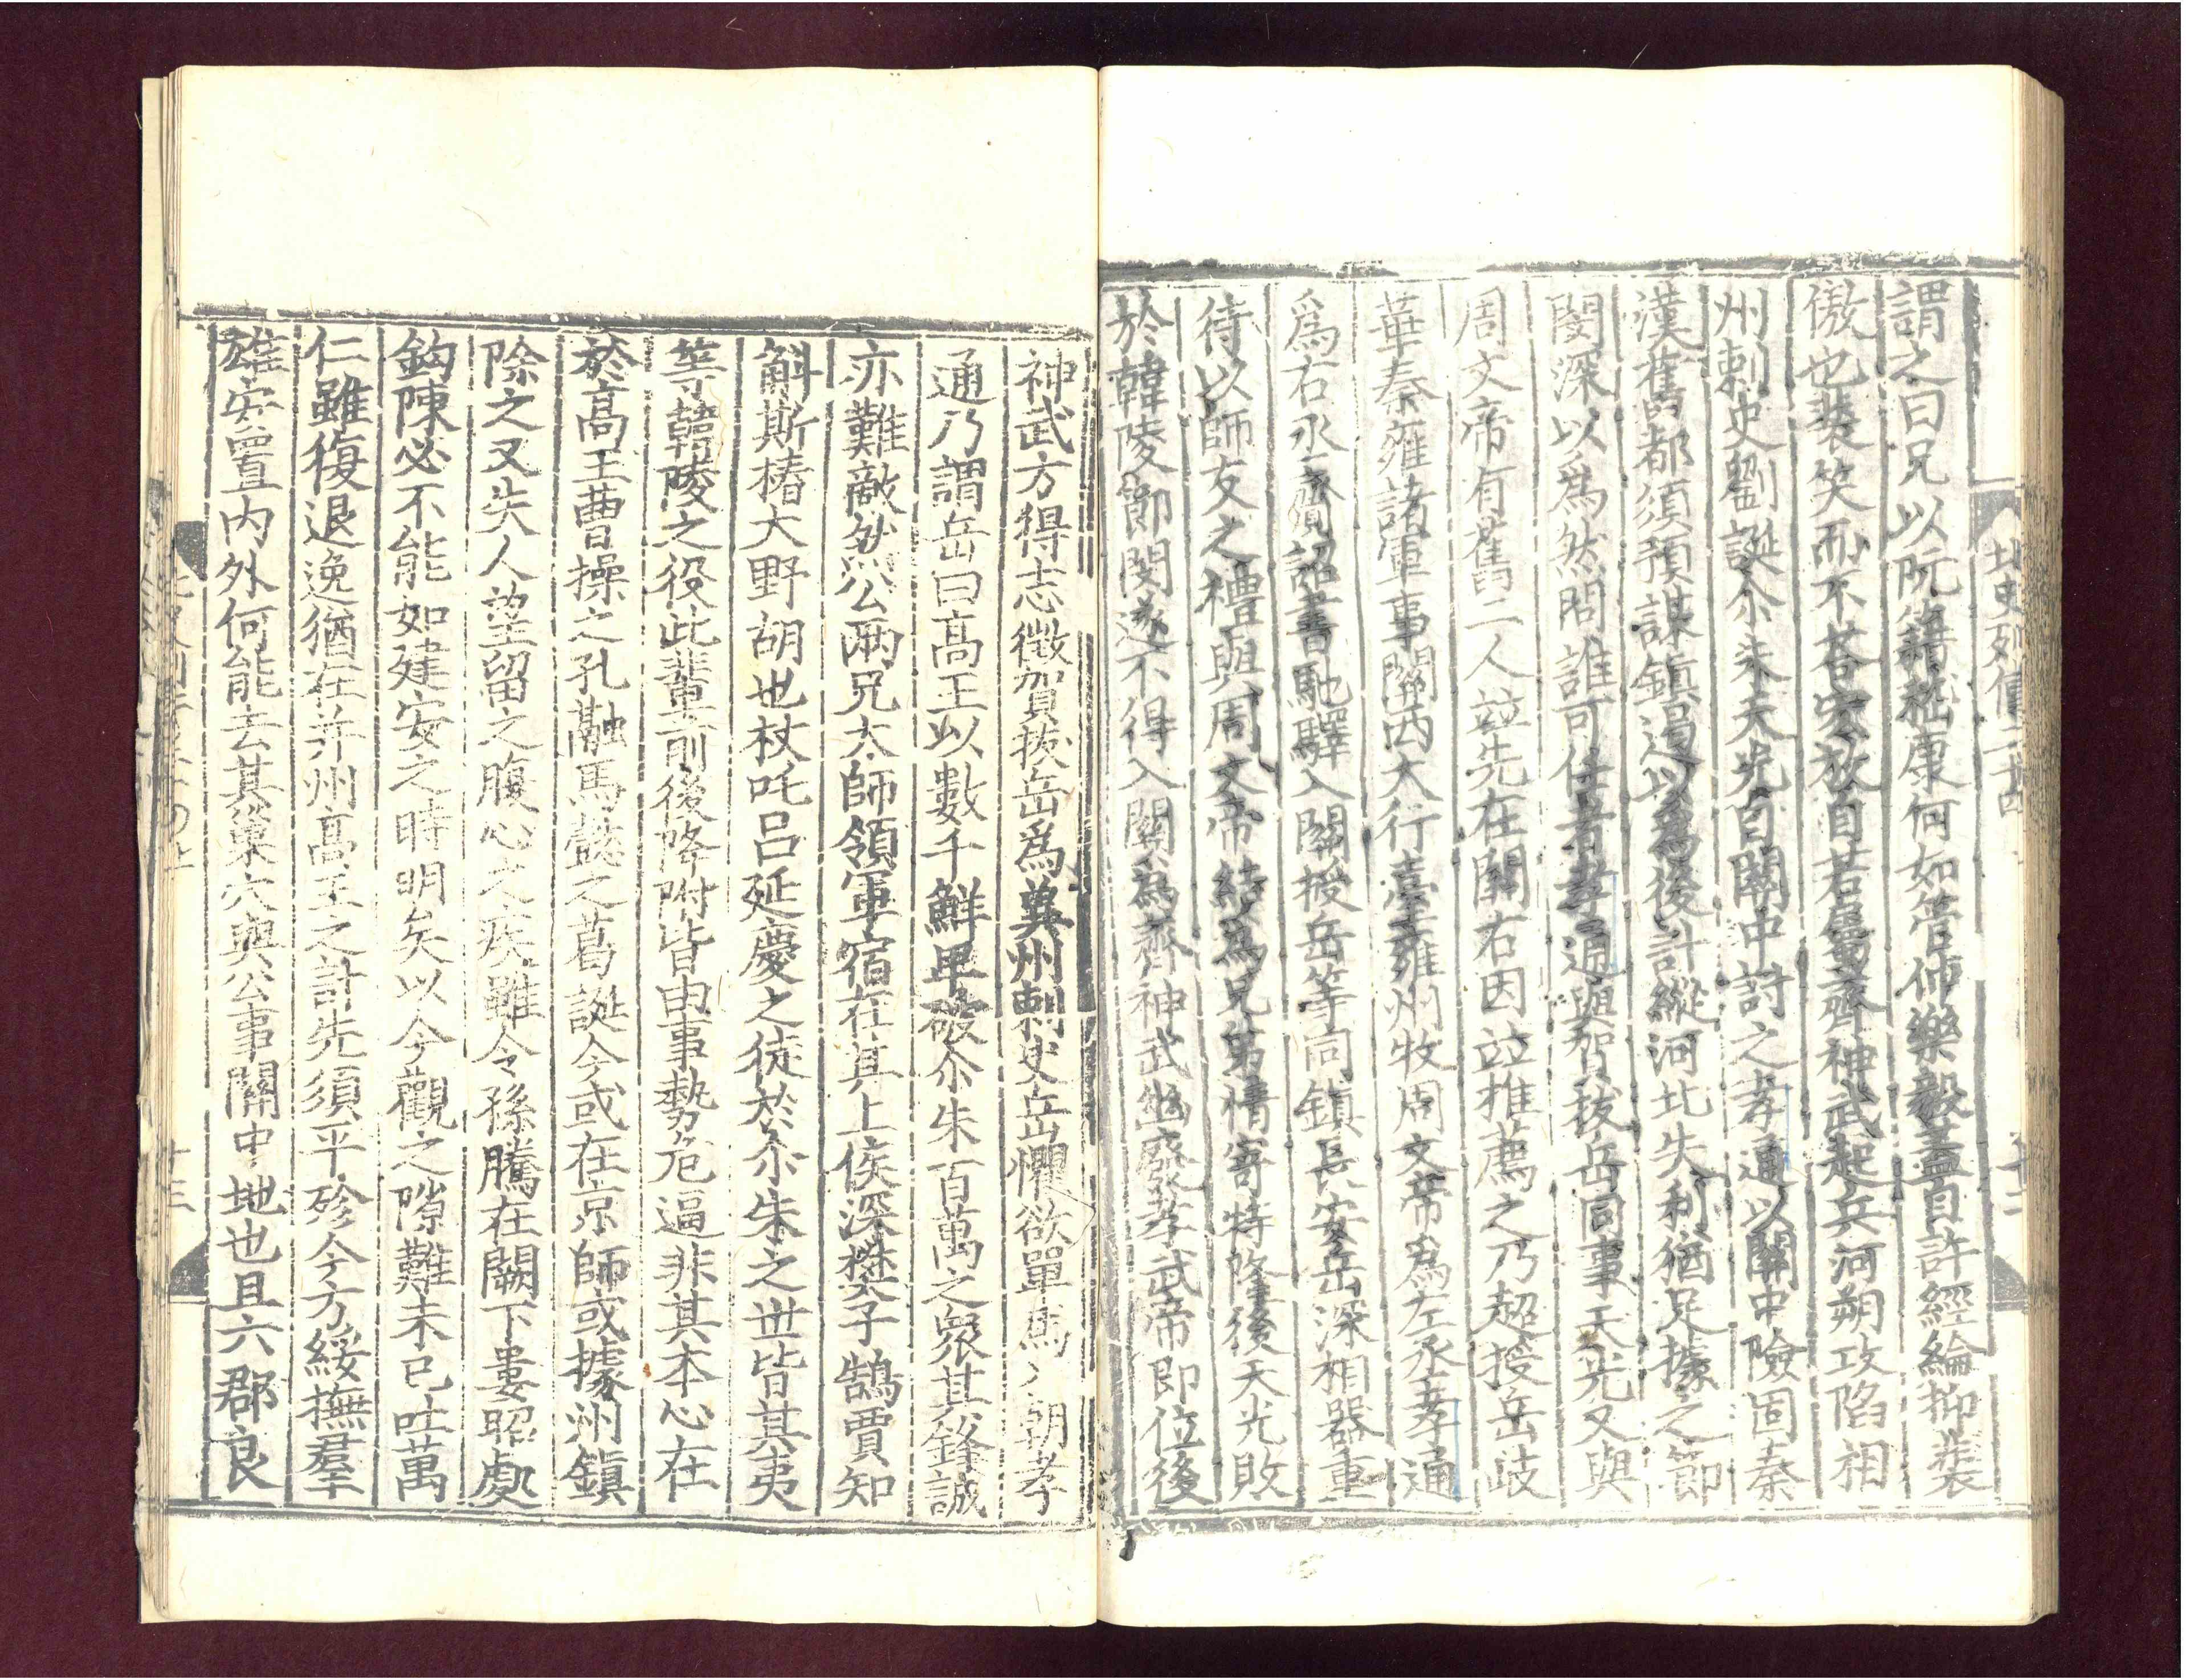 北史列傳二十四
十二
謂之曰兄以阮籍嵇康何如管仲樂毅蓋自許經綸抑裴
傲也裴笑而不荅宏放自若屬齊神武起兵河朔攻陷相
州刺史劉誕尒朱天光自關中討之孝通以關中險固秦
漢舊都須預謀鎮遏以爲後計縱河北失利猶足據之節
閔深以爲然問誰可任者孝通與賀拔岳同事天光又與
周文帝有舊二人竝先在關右因竝推薦之乃超授岳岐
華秦雍諸軍事關西大行臺雍州牧周文帝爲左丞孝通
爲右丞齎詔書馳驛入關授岳等同鎮長安岳深相器重
待以師友之禮與周文帝結爲兄弟情寄特隆後天光敗
於韓陵節閔遂不得入關爲齊神武幽廢孝武帝即位後
神武方得志徵賀拔岳爲兾州刺史岳懼欲單馬入朝孝
通乃謂岳曰高王以數千鮮卑破尒朱百萬之衆其鋒誠
亦難敵然公兩兄太師領軍宿在其上侯深樊子鵠賈知
斛斯椿大野胡也杖吒呂延慶之徒於尒朱之世皆其夷
等韓陵之役此輩前後降附皆由事勢危逼非其本心在
於高王曹操之孔融馬懿之葛誕今或在京師或據州鎮
除之又失人望留之腹心之疾雖令孫騰在闕下婁昭處
鈎陳必不能如建安之時明矣以今觀之隙難未已吐萬
仁雖復退逸猶在并州高王之計先須平殄今方綏撫羣
雄安置内外何能去其巢穴與公事關中地也且六郡良
十三